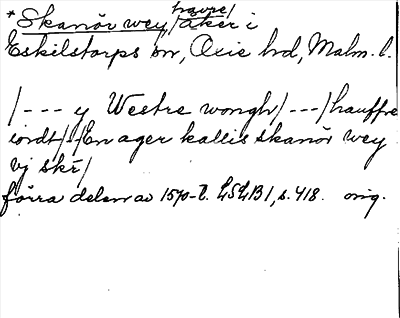 * Skanör wey, /havre/ åker i
Eskilstorps sn, Oxie hd, Malm. l.
/--- y Westre wongh/---/hauffre
iordt/s/En ager kallis skanör wey
vj skr̄/
förra delen av 1570-t. LSLB1, s. 418. orig.